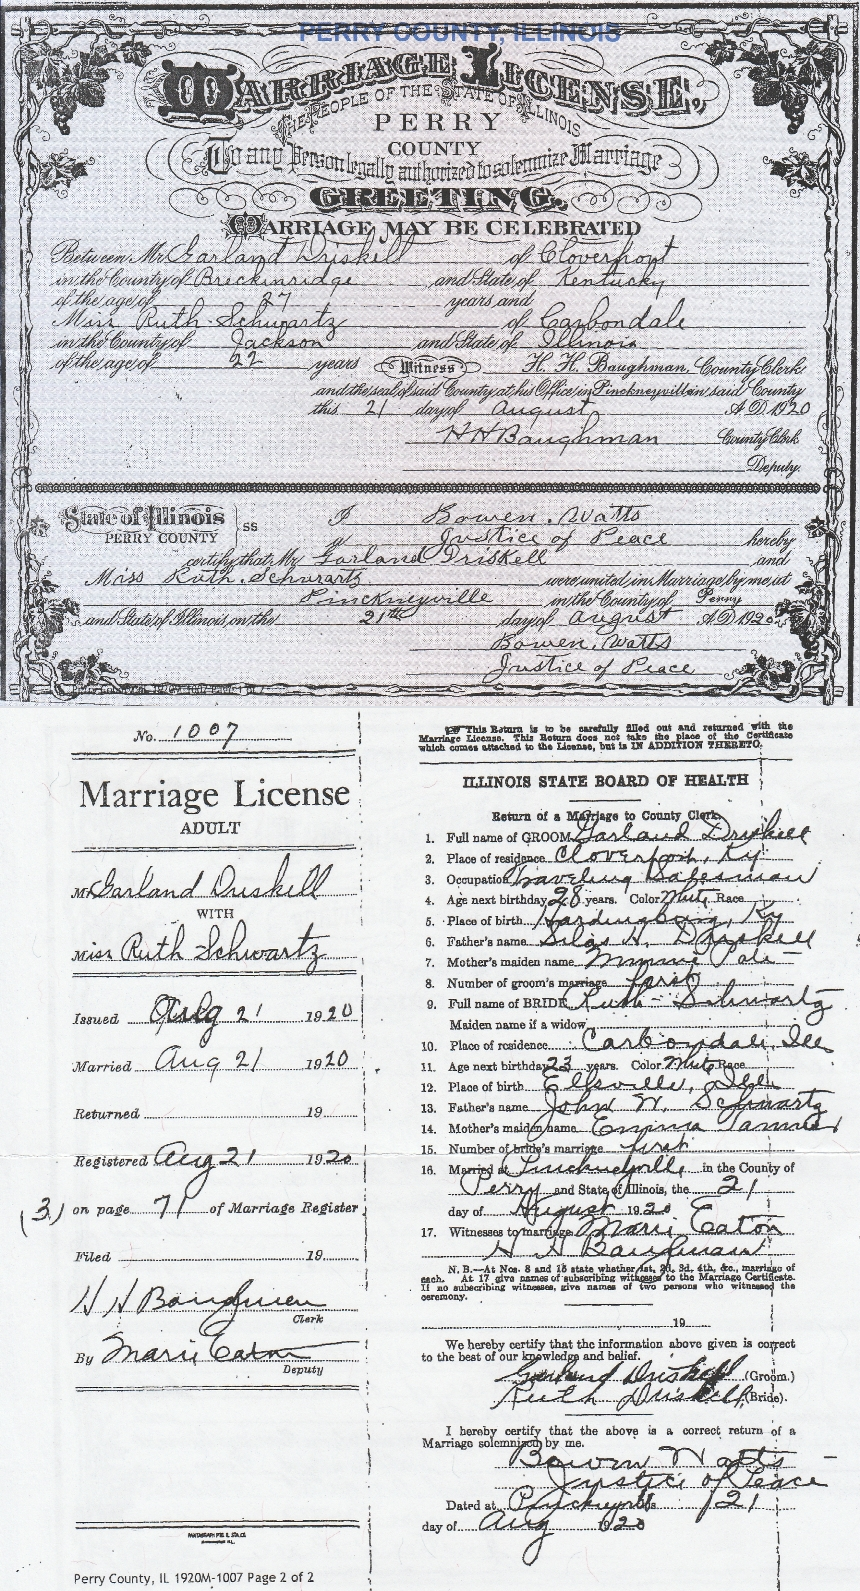 PERRY COUNTY, ILLINOIS
MARRIAGE LICENSE,
THE PEOPLE OF THE STATE OF ILLINOIS
PERRY
COUNTY
To any Person legally authorized to solemnize Marriage
GREETING.
MARRIAGE MAY BE CELEBRATED
Between Mr Garland Driskell of Cloverport
in the County of Breckinridge and State of Kentucky
of the age of 27 years and
Miss Ruth Schwartz of Carbondale
in the County of Jackson and State of Illinois
of the age of 22 years Witness H. H. Baughman, County Clerk
and the seal of said County at his Office in Pinckneyville in said County
this 21 day of August A.D. 1920
H H Baughman County Clerk
Deputy.
State of Illinois
PERRY COUNTY
ss
I Bowen Watts
Justice of Peace hereby
certify that Mr Garland Driskell and
Miss Ruth Schwartz were united in Marriage by me, at
Pinckneyville in the County of Perry
and State of Illinois, on the 21th day of August A.D. 1920
Bowen Watts
Justice of Peace
No. 1007
Marriage License
ADULT
Mr Garland Driskell
WITH
Miss Ruth Schwartz
Issued Aug 21 1920
Married Aug 21 1920
Returned 19
Registered Aug 21 1920
(3) on page 71 of Marriage Register
Filed 19
H H Baughman
Clerk
By Marie Eaton
Deputy
Perry County, IL 1920M-1007 Page 2 of 2
This Return is to be carefully filled out and returned with the
Marriage License. This Return does not take the place of the Certificate
which comes attached to the License, but is IN ADDITION THERETO.
ILLINOIS STATE BOARD OF HEALTH
Return of a Marriage to County Clerk
1. Full name of GROOM Garland Driskell
2. Place of residence Cloverport, Ky
3. Occupation Traveling Salesman
4. Age next birthday 28 years. Color White Race
5. Place of birth Hardinsburg, Ky
6. Father's name Silas H. Driskell
7. Mother's maiden name Minnie Pate
8. Number of groom's marriage first
9. Full name of BRIDE Ruth Schwartz
Maiden name if a widow
10. Place of residence Carbondale, Ill
11. Age next birthday 23 years. Color White Race
12. Place of birth Elksville, Ill
13. Father's name John W. Schwartz
14. Mother's maiden name Emma Tanner
15. Number of bride's marriage first
16. Married at Pinckneyville, in the County of
Perry and State of Illinois, the 21
day of August 1920
17. Witnesses to marriage Marie Eaton
H H Baughman
N. B.—At Nos. 8 and 15 state whether 1st, 2d, 3d, 4th, &c., marriage of
each. At 17 give names of subscribing witnesses to the Marriage Certificate.
If no subscribing witnesses, give names of two persons who witnessed the
ceremony.
19
We hereby certify that the information above given is correct
to the best of our knowledge and belief.
Garland Driskell (Groom.)
Ruth Driskell (Bride).
I hereby certify that the above is a correct return of a
Marriage solemnized by me.
Bowen Watts
Justice of Peace
Dated at Pinckneyville 21
day of Aug 1920